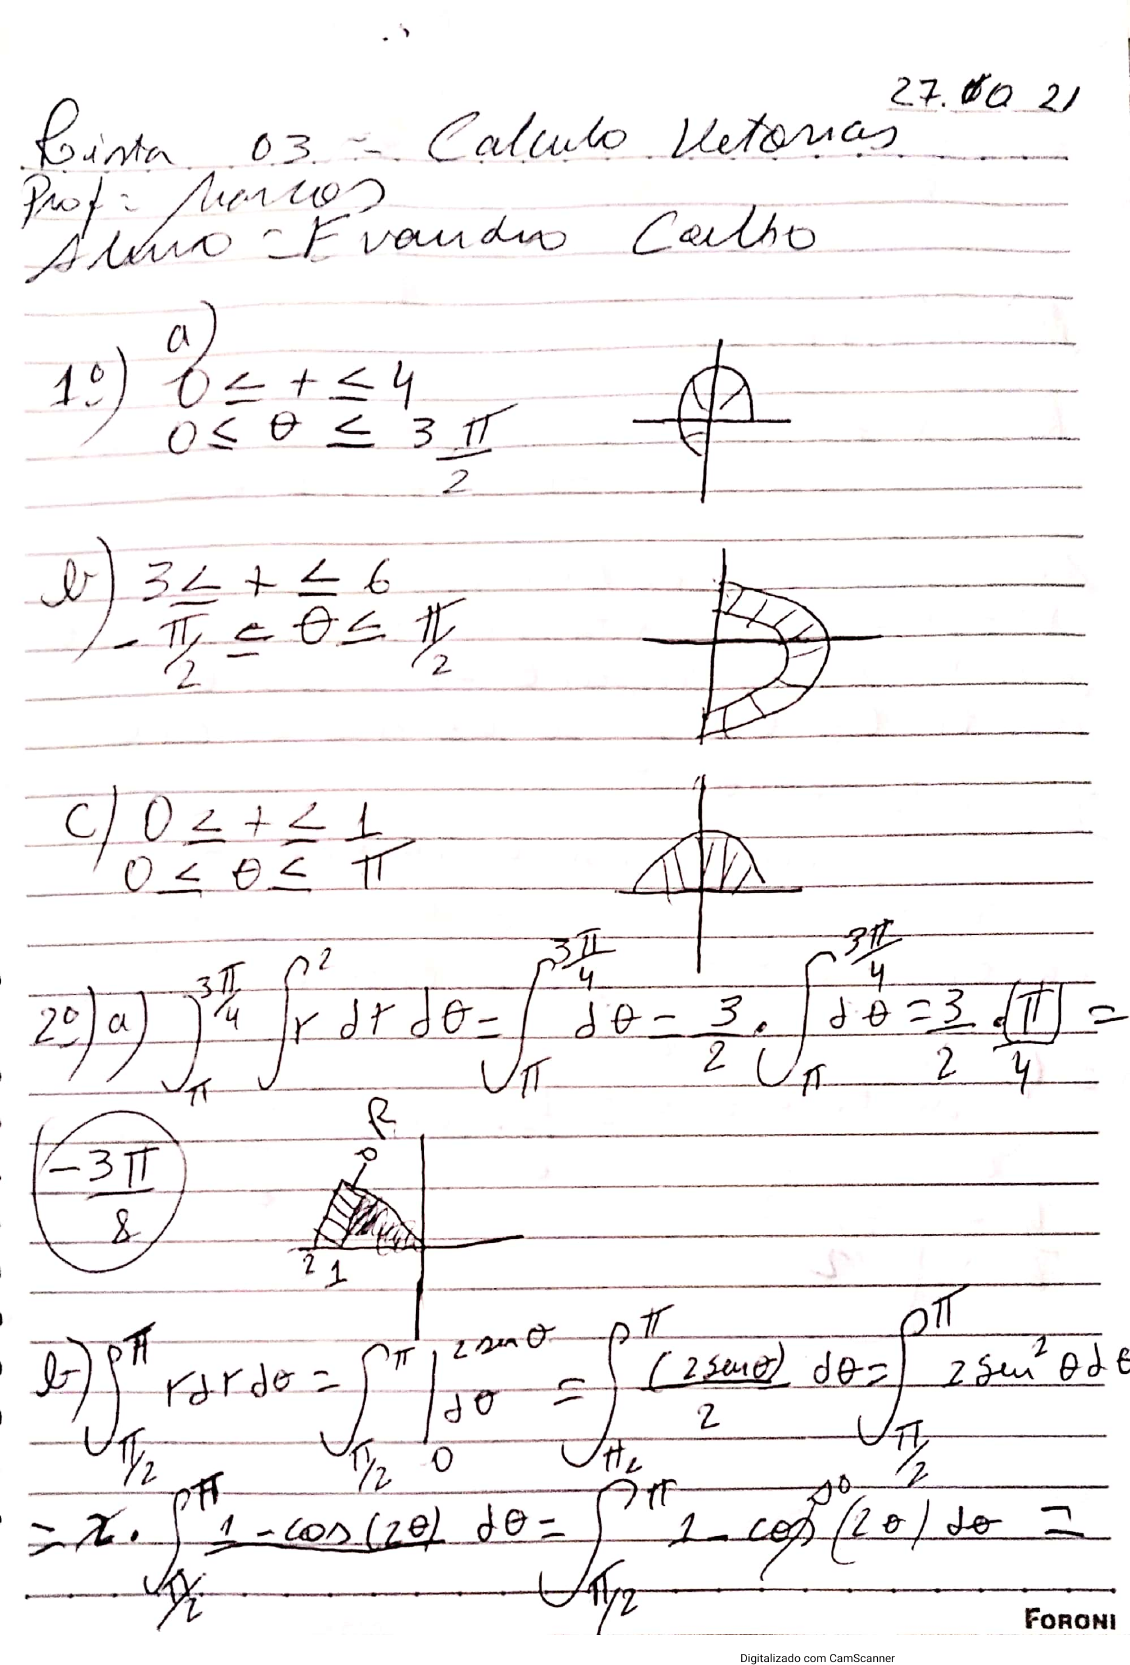 27. 10 21
Lista 03 - Calculo Vetorias
Prof= Marcos
Aluno = Evandro Coelho
a)
1º) 0 ≤ r ≤ 4
0 ≤ θ ≤ 3π/2
b) 3 ≤ r ≤ 6
-π/2 ≤ θ ≤ π/2
c) 0 ≤ r ≤ 1
0 ≤ θ ≤ π
2º) a) ∫_π^{3π/4} ∫^2 r dr dθ = ∫_π^{3π/4} dθ = 3/2 . ∫_π^{3π/4} dθ = 3/2 . [π/4] =
-3π/8
R
2 1
b) ∫_{π/2}^π r dr dθ = ∫_{π/2}^π |_0^{2senθ} dθ = ∫_{π/2}^π (2senθ)/2 dθ = ∫_{π/2}^π 2sen²θ dθ
= 2 . ∫_{π/2}^π 1 - cos(2θ) dθ = ∫_{π/2}^π 1 - cos(2θ) dθ =
0
FORONI
Digitalizado com CamScanner